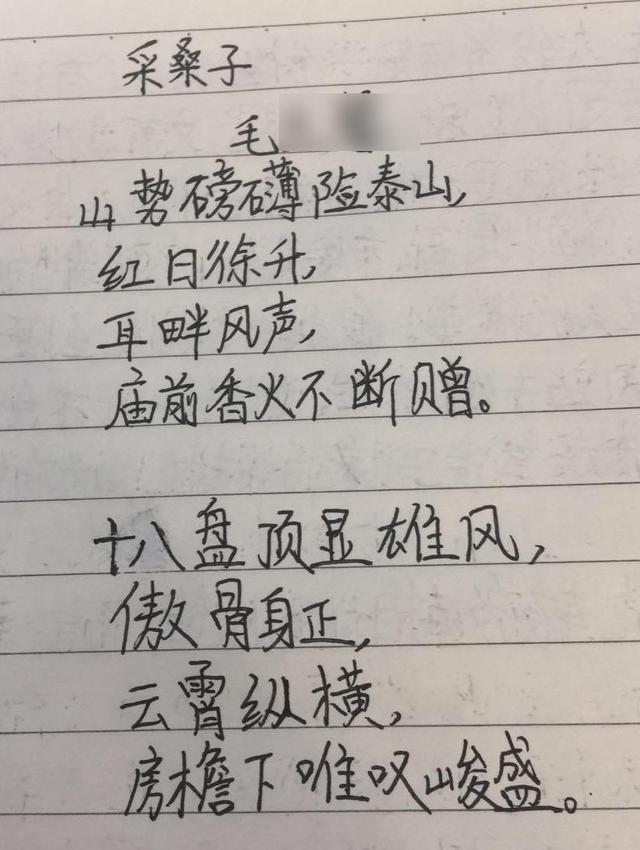 采桑子
毛
山势磅礴险泰山,
红日徐升,
耳畔风声,
庙前香火不断赠。
十八盘顶显雄风,
傲骨身正,
云霄纵横,
房檐下唯叹峻盛。